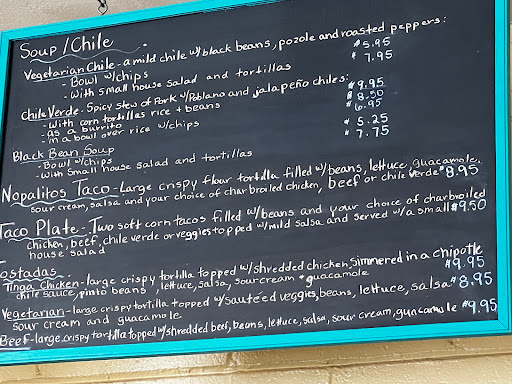 Soup/Chile
Vegetarian Chile - a mild chile w/black beans, pozole and roasted peppers:
- Bowl w/chips $5.95
- With small house salad and tortillas $7.95
Chile Verde - Spicy stew of Pork w/Poblano and jalapeño chiles:
- With corn tortillas rice + beans $9.95
- as a burrito $8.50
- in a bowl over rice w/chips $6.95
Black Bean Soup
- Bowl w/chips $5.25
- With small house salad and tortillas $7.75
Nopalitos Taco - Large crispy flour tortilla filled w/beans, lettuce, guacamole,
sour cream, salsa and your choice of charbroiled chicken, beef or chile verde $8.95
Taco Plate - Two soft corn tacos filled w/beans and your choice of charbroiled
chicken, beef, chile verde or veggies topped w/mild salsa and served w/a small $9.50
house salad
Tostadas
Tinga Chicken - large crispy tortilla topped w/shredded chicken, simmered in a chipotle
chile sauce, pinto beans, lettuce, salsa, sour cream + guacamole $9.95
Vegetarian - large crispy tortilla topped w/sautéed veggies, beans, lettuce, salsa $8.95
sour cream and guacamole
Beef - large crispy tortilla topped w/shredded beef, beans, lettuce, salsa, sour cream, guacamole $9.95